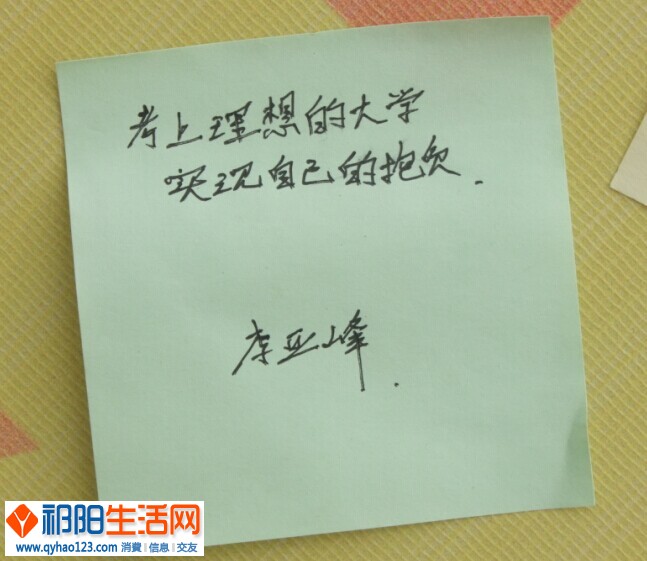 考上理想的大学
实现自己的抱负.
李亚峰.
祁阳生活网
www.qyhao123.com 消费 | 信息 | 交友